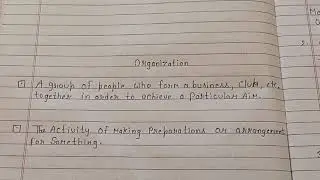 Organization
A group of people who form a business, Club, etc.
together in order to achieve a Particular Aim.
The Activity of Making Preparations or arrangement
for Something.